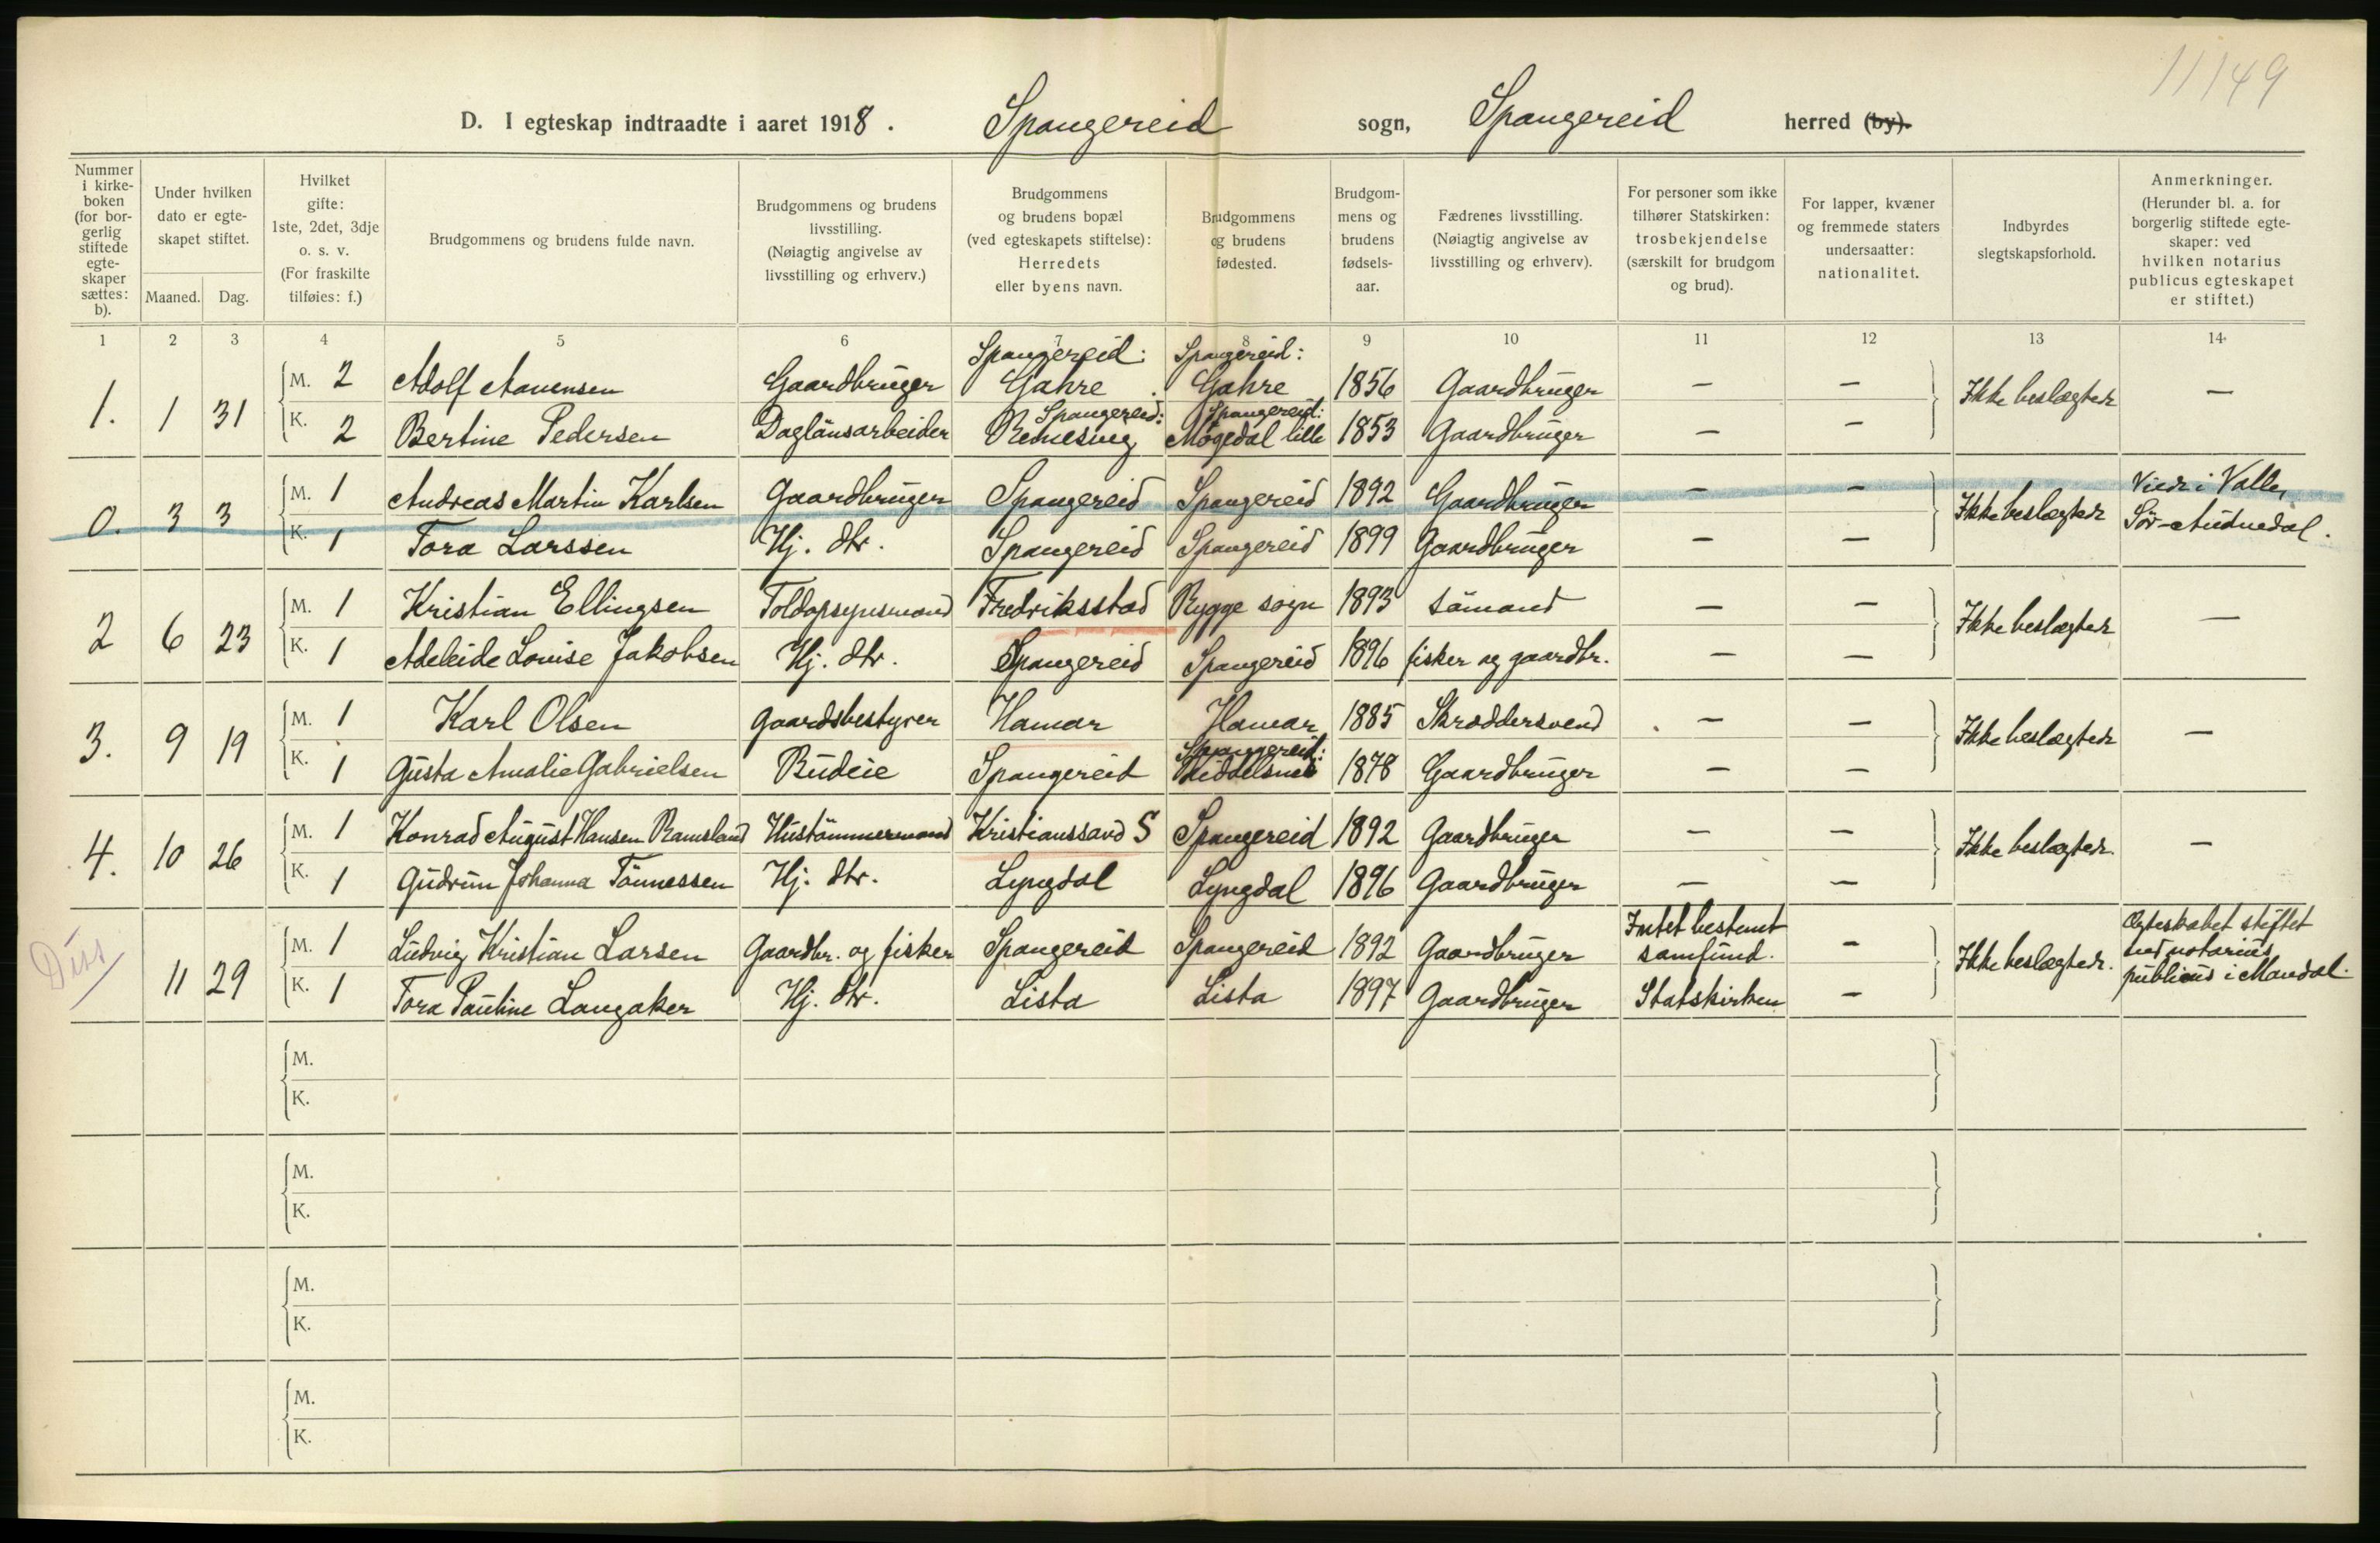 11149
D. I egteskap indtraadte i aaret 1918. Spangereid sogn, Spangereid herred (by).
Nummer i kirkeboken (for borgerlig stiftede egteskaper sættes: b).
Under hvilken dato er egteskapet stiftet.
Maaned. Dag.
Hvilket gifte: 1ste, 2det, 3dje o. s. v. (For fraskilte tilføies: f.)
Brudgommens og brudens fulde navn.
Brudgommens og brudens livsstilling. (Nøiagtig angivelse av livsstilling og erhverv.)
Brudgommens og brudens bopæl (ved egteskapets stiftelse): Herredets eller byens navn.
Brudgommens og brudens fødested.
Brudgommens og brudens fødselsaar.
Fædrenes livsstilling. (Nøiagtig angivelse av livsstilling og erhverv).
For personer som ikke tilhører Statskirken: trosbekjendelse (særskilt for brudgom og brud).
For lapper, kvæner og fremmede staters undersaatter: nationalitet.
Indbyrdes slegtskapsforhold.
Anmerkninger. (Herunder bl. a. for borgerlig stiftede egteskaper: ved hvilken notarius publicus egteskapet er stiftet.)
1 2 3 4 5 6 7 8 9 10 11 12 13 14
1. 1 31 M. 2 Adolf Aanensen Gaardbruger Spangereid: Gahre Spangereid: Gahre 1856 Gaardbruger — — Ikke beslægtede —
K. 2 Bertine Pedersen Daglönsarbeider Spangereid: Spangereid: Møgedal lille 1853 Gaardbruger — —
0. 3 3 M. 1 Andreas Martin Karlsen Gaardbruger Spangereid Spangereid 1892 Gaardbruger — — Ikke beslægtede Viede i Valle, Sör-Audnedal.
K. 1 Tora Larssen Hj. dtr. Spangereid Spangereid 1899 Gaardbruger — —
2 6 23 M. 1 Kristian Ellingsen Toldopsynsmand Fredriksstad Rygge sogn 1893 sömand — — Ikke beslægtede —
K. 1 Adeleide Lovise Jakobsen Hj. dtr. Spangereid Spangereid 1896 fisker og gaardbr. — —
3. 9 19 M. 1 Karl Olsen gaardsbestyrer Hamar Hamar 1885 Skræddersvend — — Ikke beslægtede —
K. 1 Gusta Amalie Gabrielsen Budeie Spangereid Spangereid: 1878 Gaardbruger — —
4. 10 26 M. 1 Konrad August Hansen Ramsland Hustömmermand Kristianssand S Spangereid 1892 Gaardbruger — — Ikke beslægtede. —
K. 1 Gudrun Johanna Tönnessen Hj. dtr. Lyngdal Lyngdal 1896 Gaardbruger — —
Diss
11 29 M. 1 Ludvig Kristian Larsen Gaardbr. og fisker Spangereid Spangereid 1892 Gaardbruger Intet bestemt samfund. — Ikke beslægtede. Ægteskabet stiftet ved notarius publicus i Mandal.
K. 1 Tora Pauline Langaker Hj. dtr. Lista Lista 1897 Gaardbruger Statskirken —
M.
K.
M.
K.
M.
K.
M.
K.